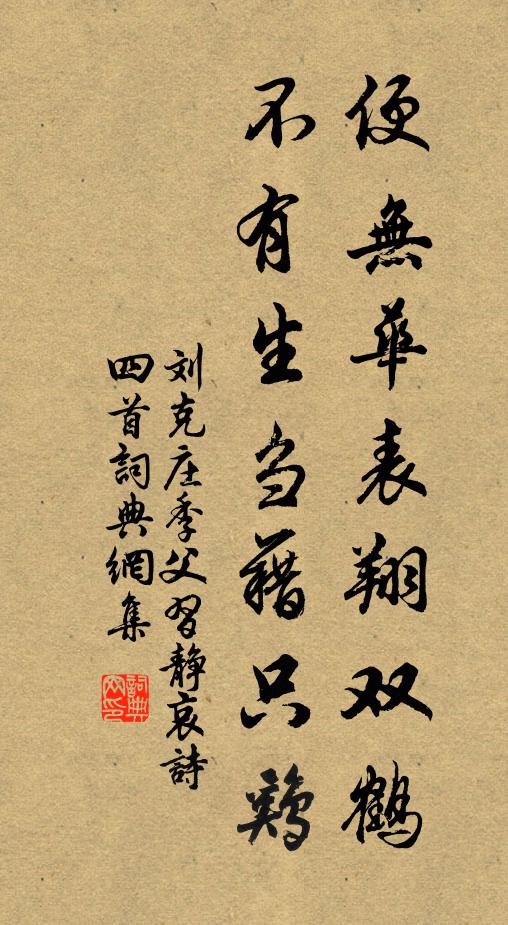 便無華表翔双鶴
不有生刍藉只鷄
刘克庄季父習静哀詩
四首詞典網集
詞典網印